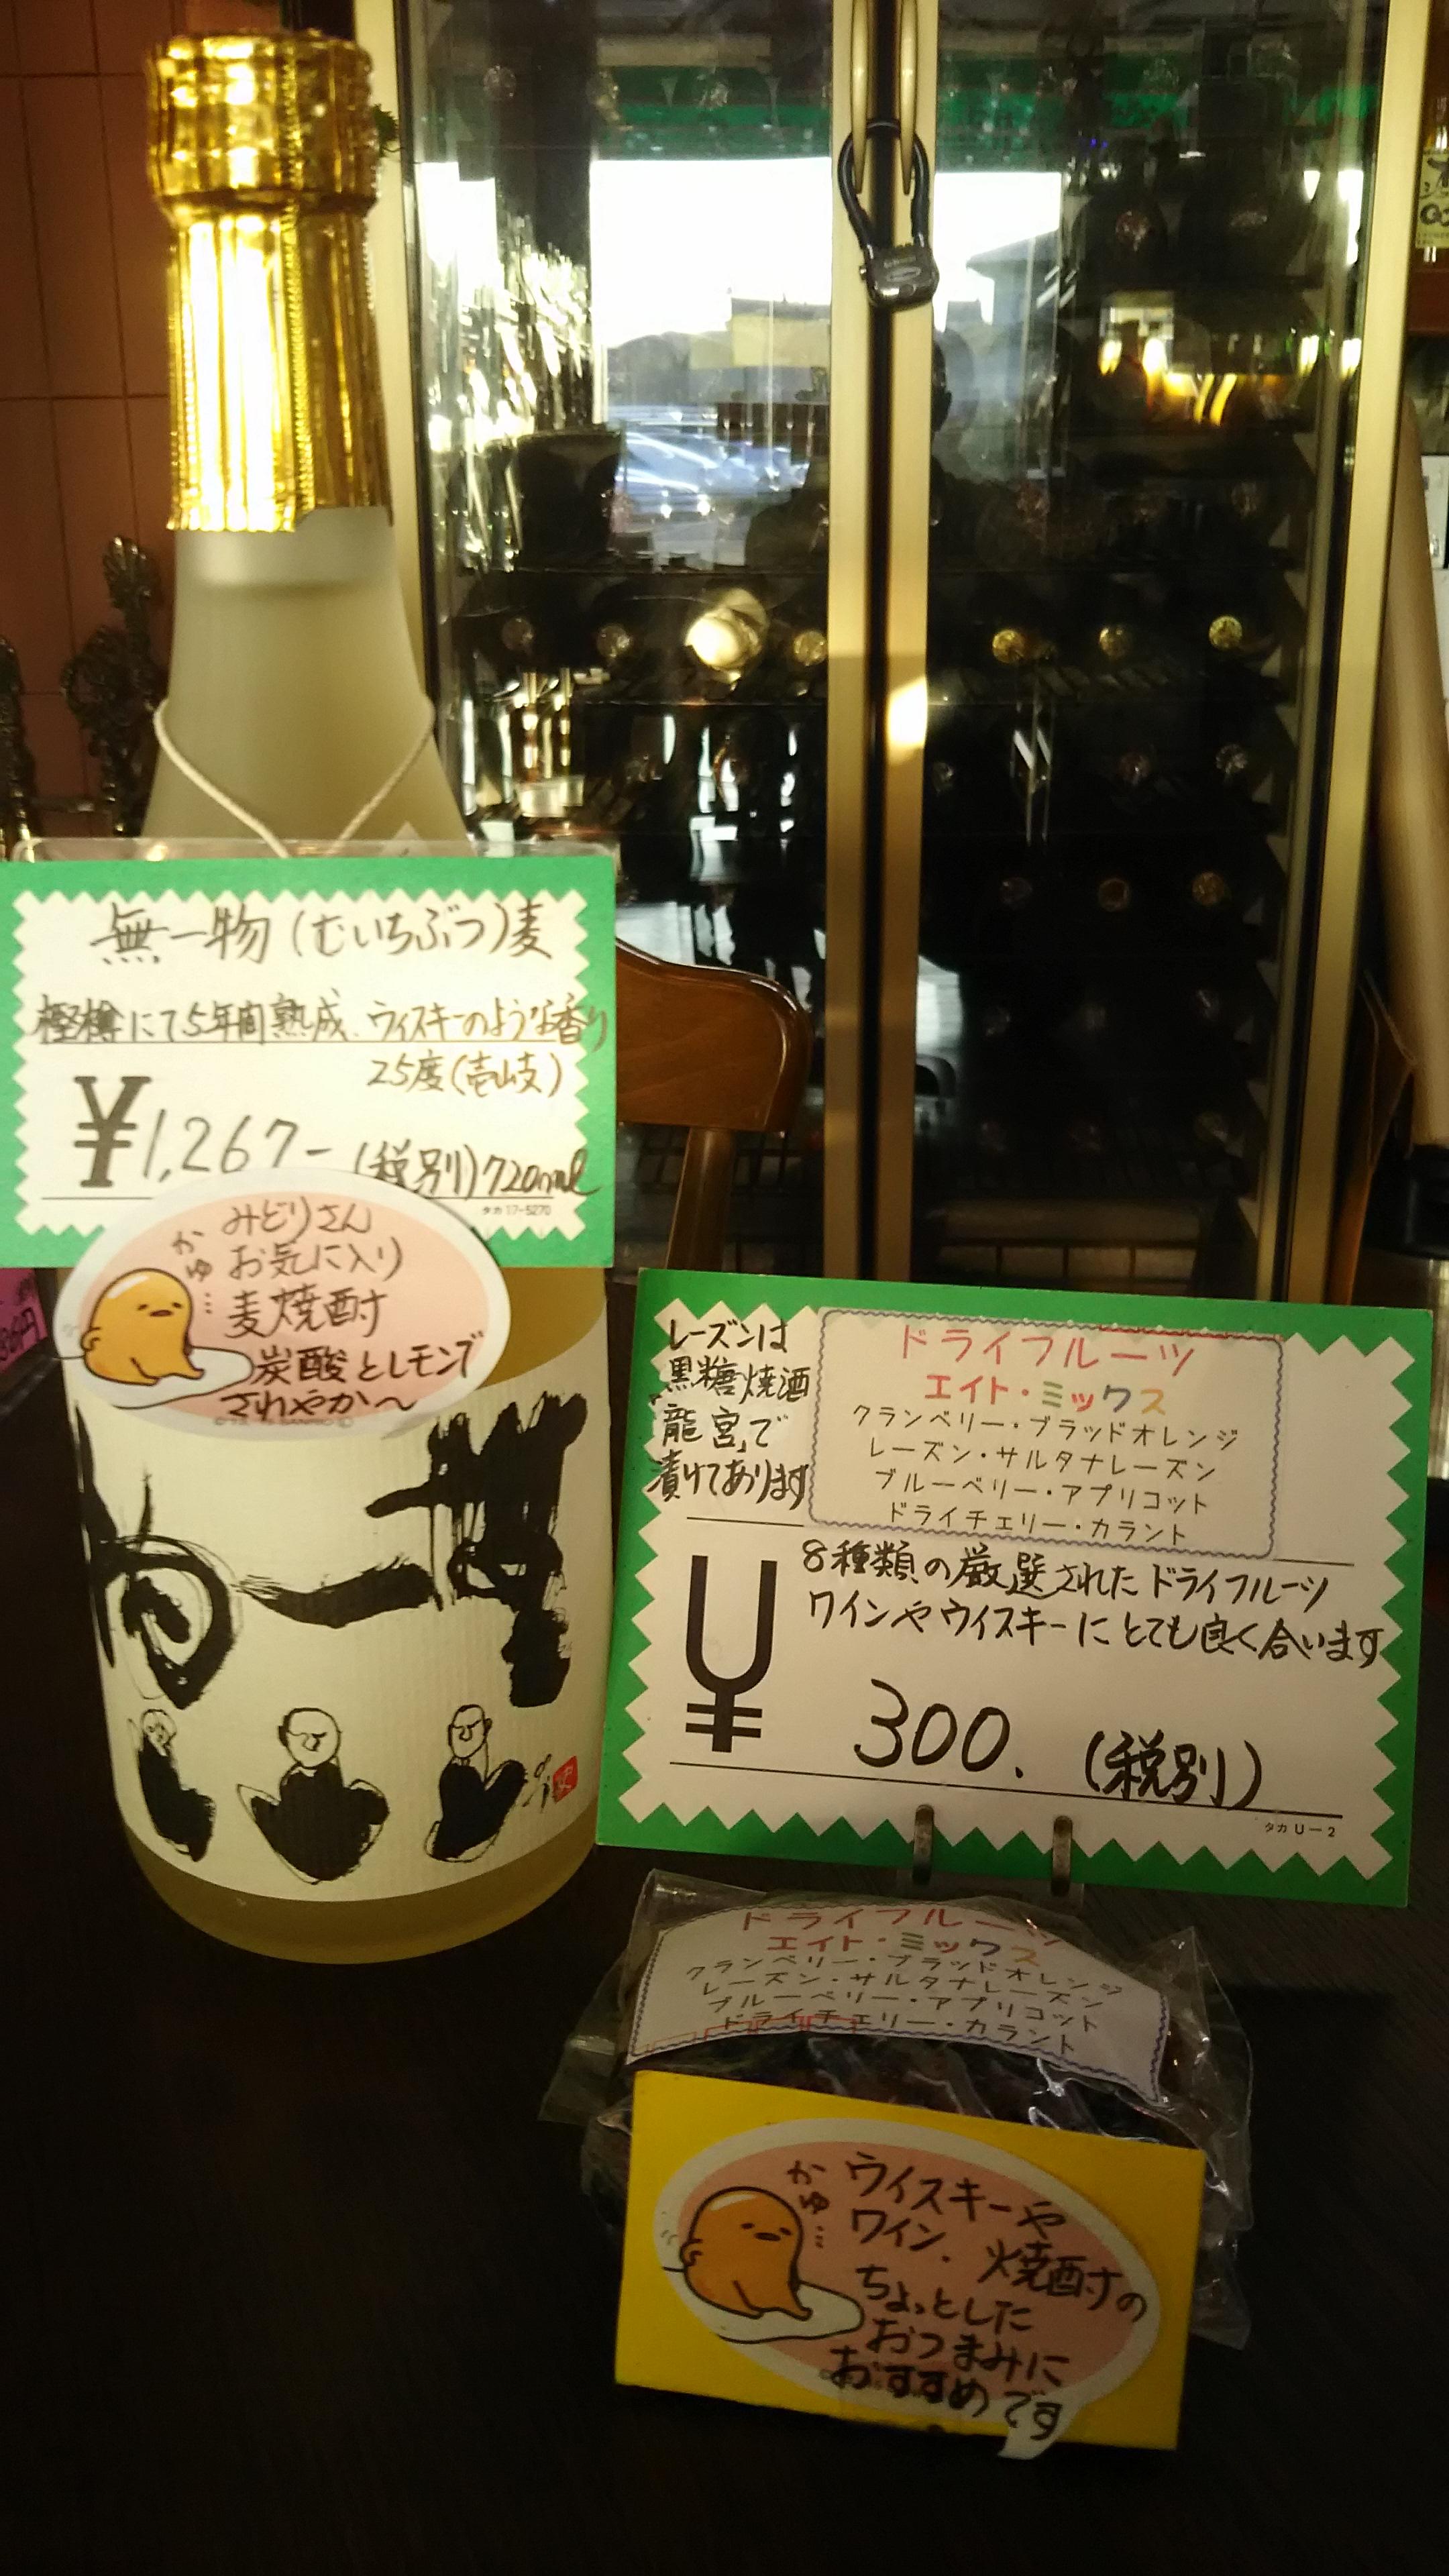 無一物(むいちぶつ)麦
樫樽にて5年間熟成、ウィスキーのような香り
25度(壱岐)
¥1,267-(税別)720ml
タカ 17-5270
かゆ…
みどりさん
お気に入り
麦焼酎
炭酸とレモンで
さわやか〜
無一物
レーズンは
黒糖焼酒
「龍宮」で
漬けてあります
ドライフルーツ
エイト・ミックス
クランベリー・ブラッドオレンジ
レーズン・サルタナレーズン
ブルーベリー・アプリコット
ドライチェリー・カラント
8種類の厳選されたドライフルーツ
ワインやウイスキーにとても良く合います
¥300.(税別)
タカ U-2
ドライフルーツ
エイト・ミックス
クランベリー・ブラッドオレンジ
レーズン・サルタナレーズン
ブルーベリー・アプリコット
ドライチェリー・カラント
かゆ…
ウイスキーや
ワイン、焼酎の
ちょっとした
おつまみに
おすすめです